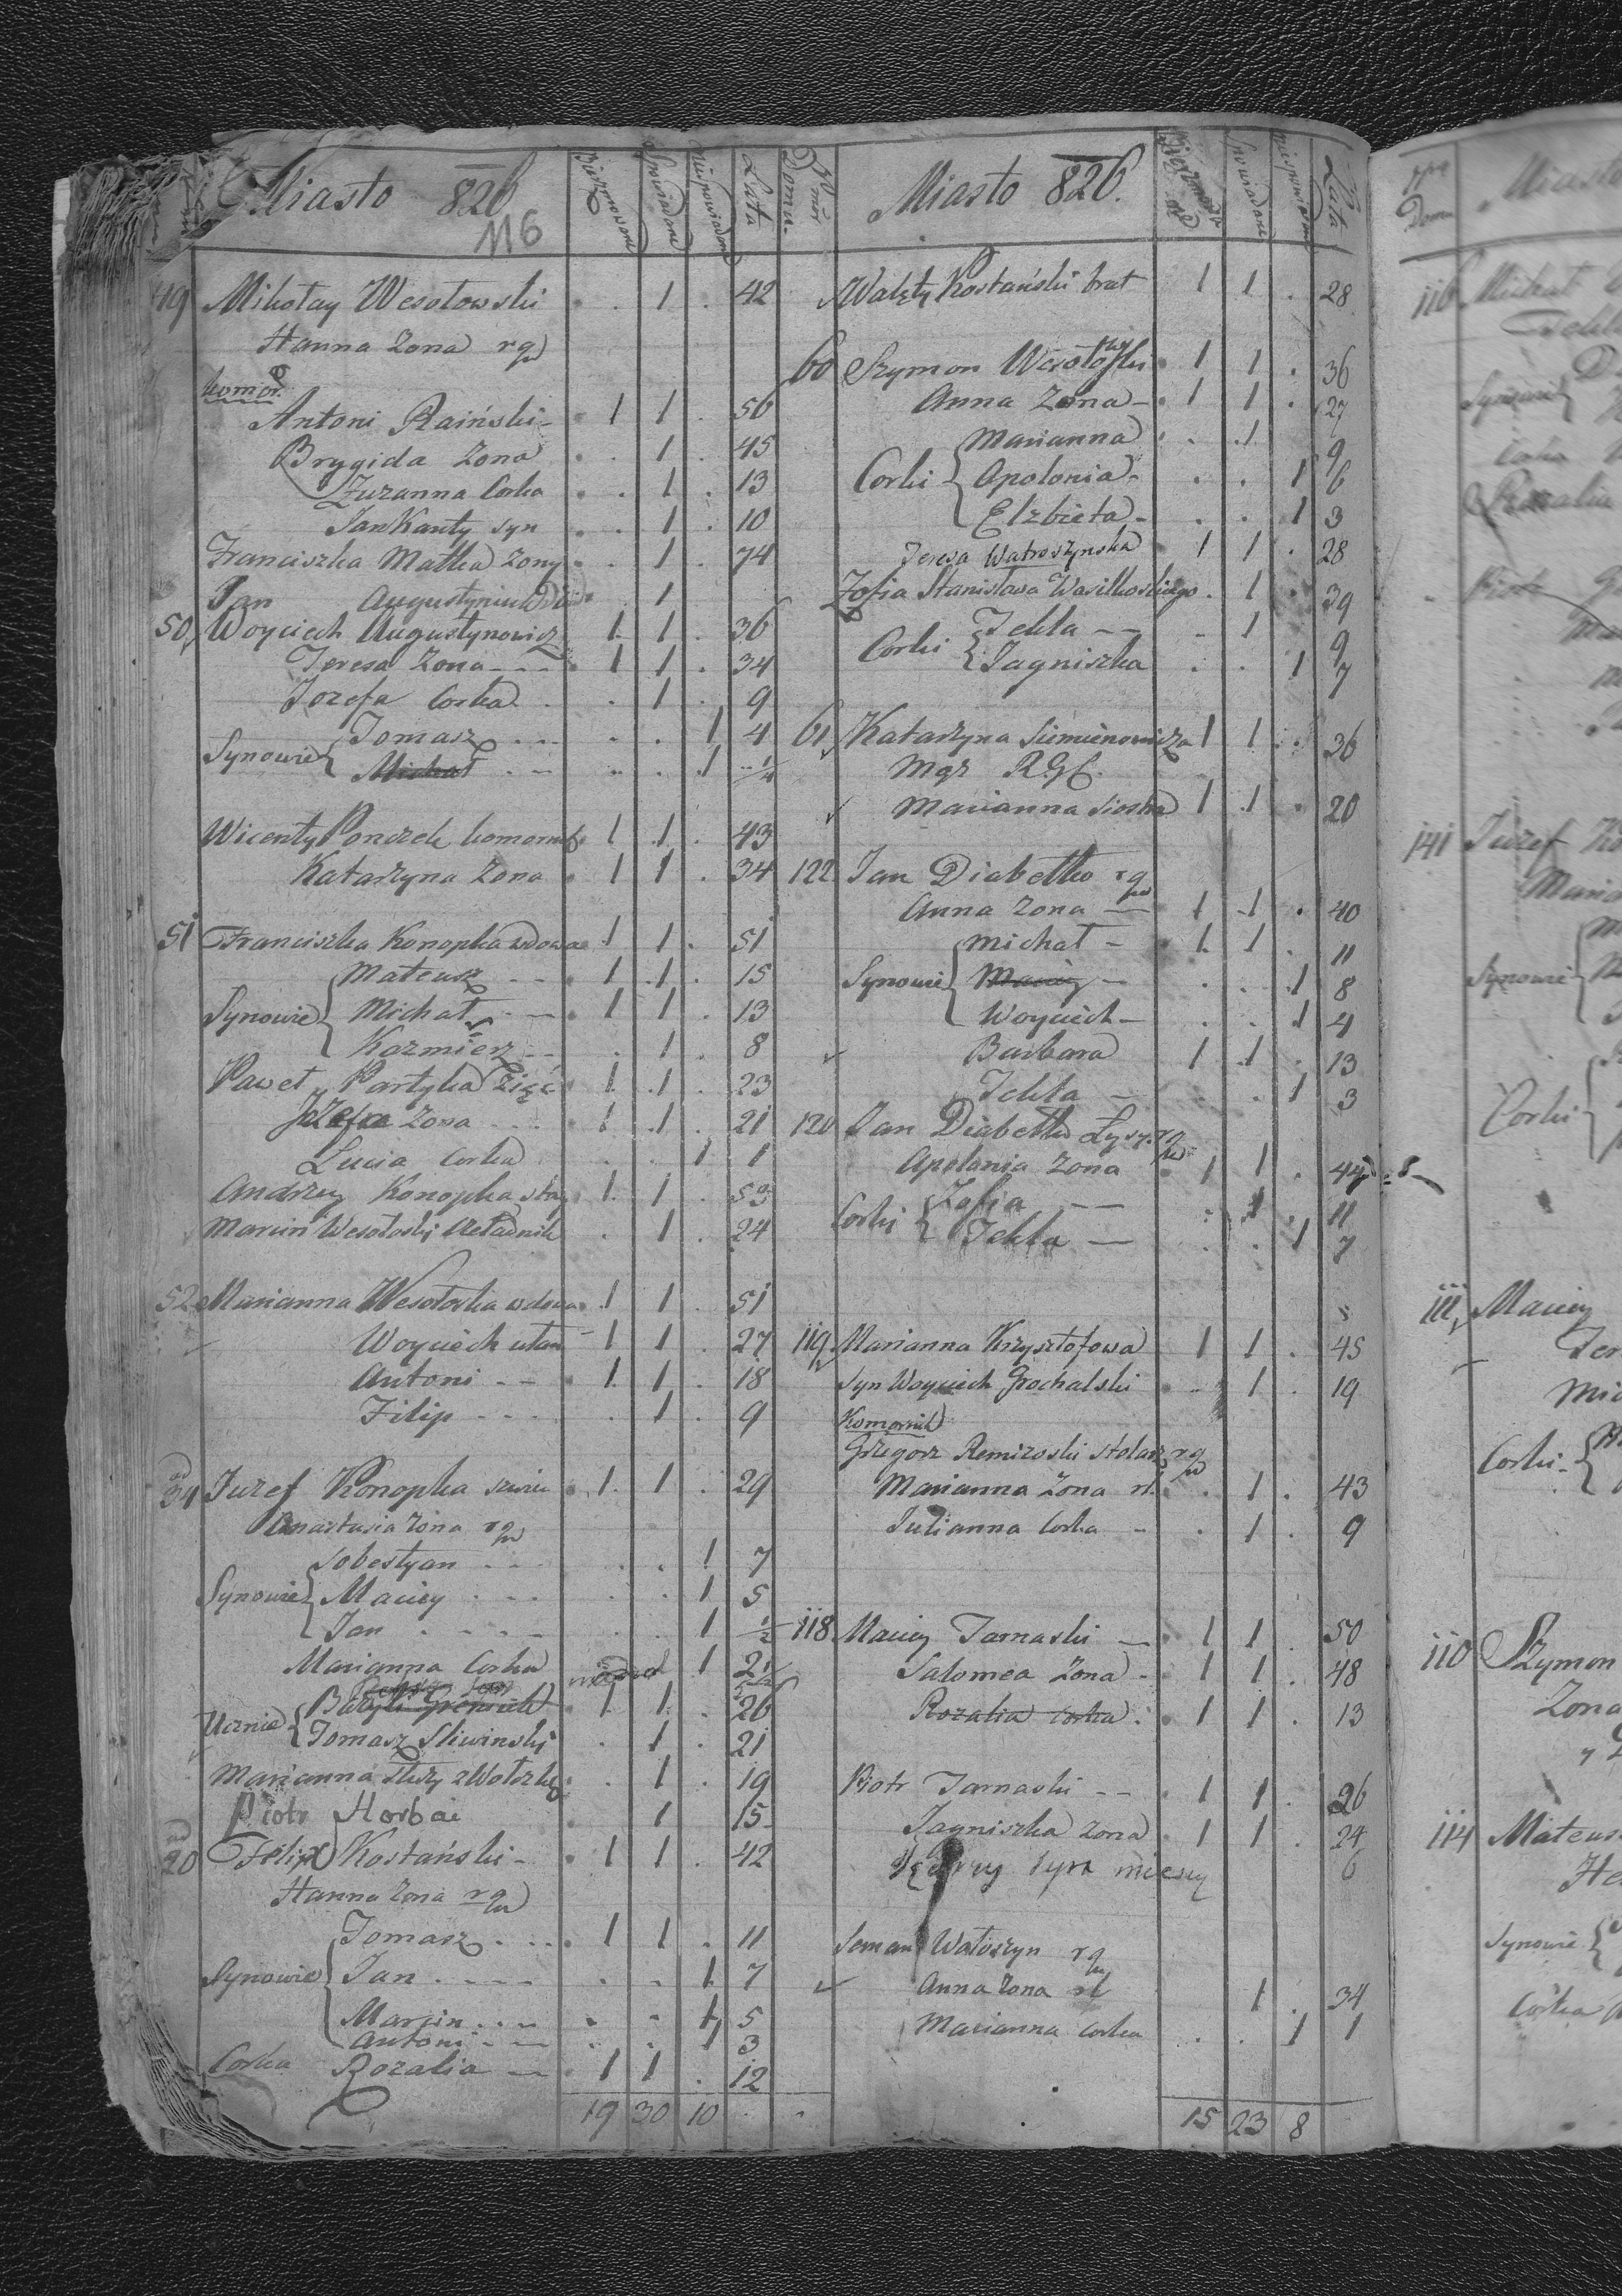 Miasto 826
116
Bierzmowane Spowiadane niespowiadane Lata
49 Mikołay Wesołowski . . 1 . 42
Hanna Zona rgu
komor.
Antoni Raiński - . 1 1 . 56
Brygida Zona . . 1 . 45
Zuzanna Corka . . 1 . 13
Jan Kanty syn . . 1 . 10
Franciszka Matka Zony . . 1 . 74
Jan Augustyniuk 1
50 Woyciech Augustynowicz 1 1 . 36
Teresa Zona - - - . 1 1 . 34
Jozefa Corka . . 1 . 9
Synowie Tomasz . . . . . 1 4
Michał . - . . 1 1/4
Wicenty Ponczek komornik 1 1 . 43
Katarzyna Zona . 1 1 . 34
51 Franciszka Konopka wdowa 1 1 . 51
Mateusz - - . 1 1 . 15
Synowie Michał . - . 1 1 . 13
Kazmierz - - . 1 . 8
Paweł Partyka Zięć . 1 1 . 23
Jozefa Zona . . . 1 1 . 21
Lucia Corka . . 1 1
Andrzey Konopka 1 1 . 59
Marcin Wesołoski Układnik . 1 . 24
52 Marianna Wesołoska wdowa . 1 1 . 51
Woyciech ułan - 1 1 . 27
Antoni - - . 1 1 . 18
Filip - - - . 1 . 9
ad
34 Juzef Konopka . 1 1 . 29
Anastasia Zona rgu
Sobestyan - - . . . 1 7
Synowie Maciey . - - . . 1 5
Jan . - - - . . 1 1/2
Marianna Corka 1 2 1/2
Ucznie Bazyli 1 1 . 26
Tomasz Sliwinski . 1 . 21
Marianna służy z Wołozki . . 1 . 19
Piotr Horbai . 1 15
ad
20 Felix Kostański - . 1 1 . 42
Hanna Zona rgu
Tomasz . . . . 1 1 . 11
Synowie Jan . - - - . - 1 7
Marcin . . - . - 1 5
Antoni - - . . 1 3
Corka Rozalia - - 1 1 . 12
19 30 10 . .
Nmr Domu.
Miasto 826.
Bierzmowane Spowiadane niespowiadane Lata
Walęty Kostański brat 1 1 . 28
60 Szymon Wesołowski . 1 1 . 36
Anna Zona - . 1 1 . 27
Marianna . . 1 9
Corki Apolonia - . . 1 6
Elzbieta - . . 1 3
Teresa Watroszynska 1 1 . 28
Zofia Stanisława Wasilkoskiego . 1 . 39
Tekla - - - 1 9
Corki Jagniszka . . 1 7
61 Katarzyna Siemienowicza 1 1 . 36
Mąz RGC.
Marianna Siostra 1 1 . 20
122 Jan Diabełko rgu
Anna Zona - . 1 1 . 40
Michał - . 1 1 . 11
Synowie Maciey - . . 1 8
Woyciech - . . 1 4
Barbara 1 1 . 13
Tekla - . . 1 3
120 Jan Diabełko Łysy rgu
Apolonia Zona . 1 1 . 44
Corki Zofia - - . 1 . 11
Tekla - . . 1 7
119 Marianna Krzysztofowa 1 1 . 45
Syn Woyciech Grochalski . . 1 . 19
Komornik
Grzegorz Remizoski Stolarz rgu
Marianna Zona rl. . 1 . 43
Julianna Corka - . 1 . 9
118 Maciey Tarnaski - . 1 1 . 50
Salomea Zona - . 1 1 . 48
Rozalia Corka . 1 1 . 13
Piotr Tarnaski - - . 1 1 . 26
Jagniszka Zona . 1 1 . 24
syn miescy 6
Seman Watoszyn rgu
Anna Zona rl 1 . 34
Marianna Corka . . 1 1
15 23 8
Nro Domu
Miasto
116 Michał
Tekla
Synowie
Corka
Rozalia
Piotr
141 Juzef
Synowie
Corki
111 Maciey
Corki -
110 Szymon
Zona
114 Mateusz
Synowie
Corka